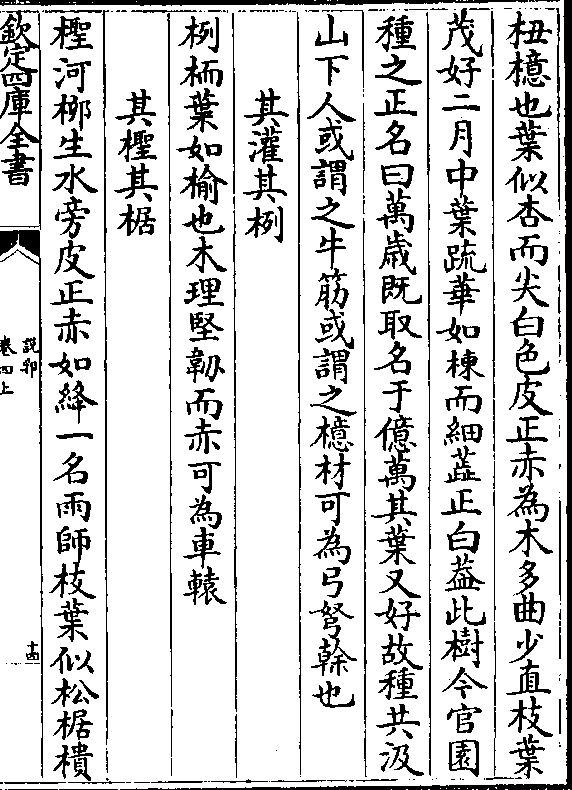 杻檍也葉似杏而尖白色皮正赤為木多曲少直枝葉
茂好二月中葉疏華如楝而細蘂正白葢此樹今官園
種之正名曰萬歲既取名于億萬其葉又好故種共汲
山下人或謂之牛筋或謂之檍材可為弓弩榦也
其灌其栵
栵栭葉如榆也木理堅韌而赤可為車轅
其檉其椐
檉河栁生水旁皮正赤如絳一名雨師枝葉似松椐樻
欽定四庫全書
說郛
卷四上
十四